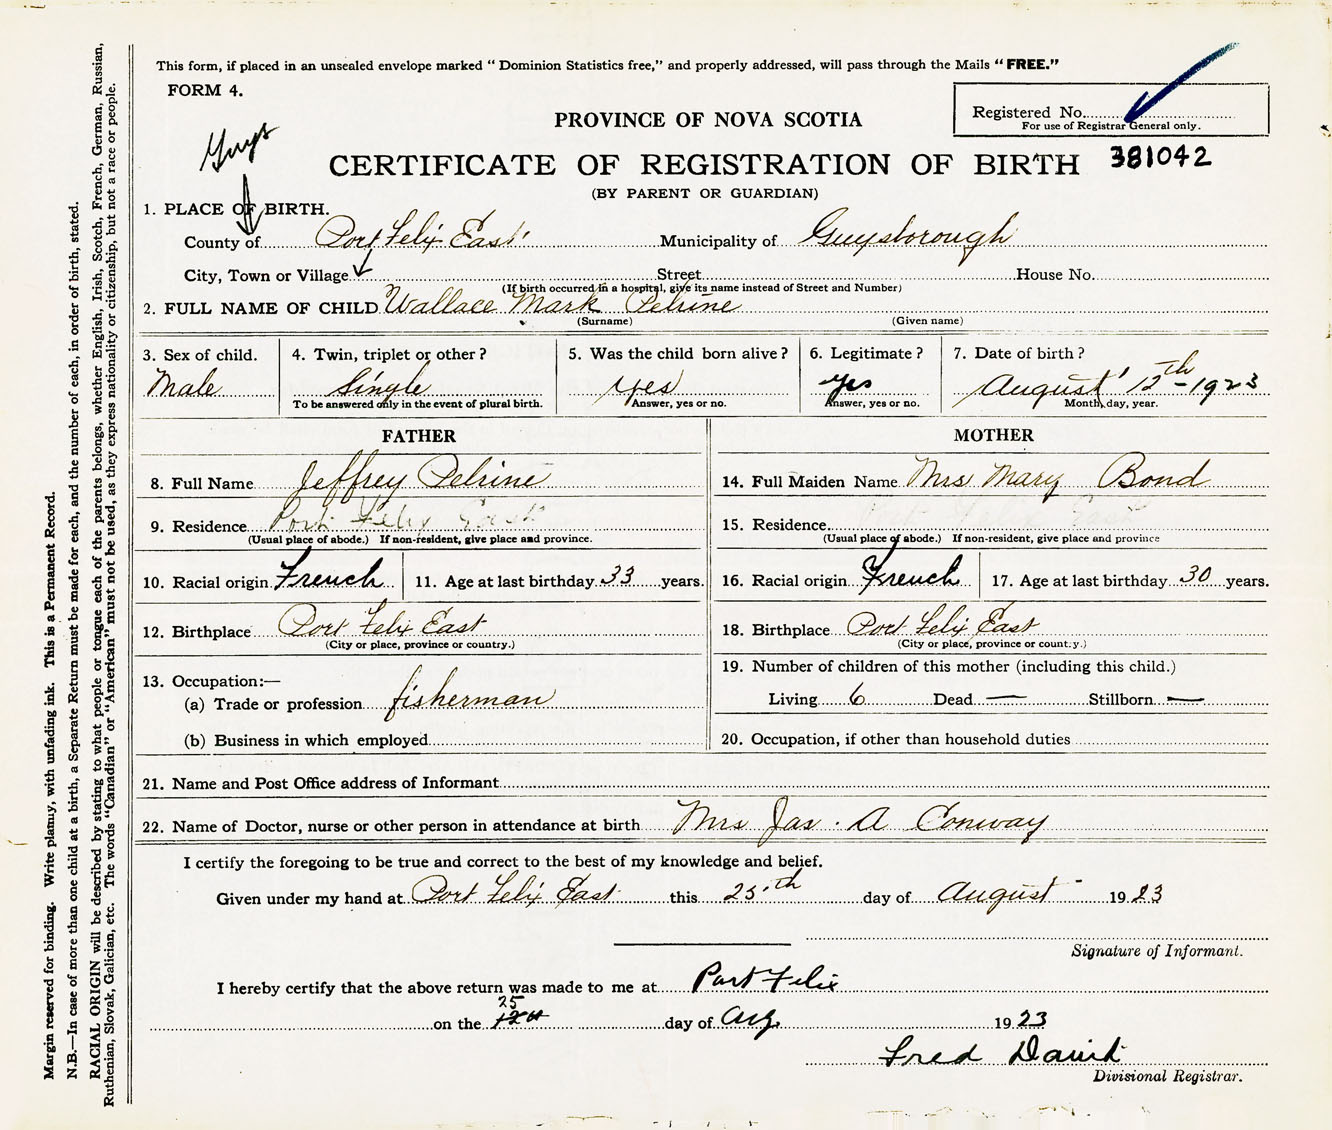 This form, if placed in an unsealed envelope marked “Dominion Statistics free,” and properly addressed, will pass through the Mails “FREE.”
FORM 4.
Registered No.
For use of Registrar General only.
PROVINCE OF NOVA SCOTIA
Guys
CERTIFICATE OF REGISTRATION OF BIRTH 381042
(BY PARENT OR GUARDIAN)
1. PLACE OF BIRTH.
County of Port Felix East Municipality of Guysborough
City, Town or Village Street House No.
(If birth occurred in a hospital, give its name instead of Street and Number)
2. FULL NAME OF CHILD Wallace Mark Pelrine
(Surname) (Given name)
3. Sex of child. 4. Twin, triplet or other? 5. Was the child born alive? 6. Legitimate? 7. Date of birth?
Male Single yes yes August 12th - 1923
To be answered only in the event of plural birth. Answer, yes or no. Answer, yes or no. Month, day, year.
FATHER MOTHER
8. Full Name Jeffrey Pelrine 14. Full Maiden Name Mrs Mary Bond
9. Residence Port Felix East 15. Residence. Port Felix East
(Usual place of abode.) If non-resident, give place and province. (Usual place of abode.) If non-resident, give place and province
10. Racial origin French 11. Age at last birthday 33 years. 16. Racial origin French 17. Age at last birthday 30 years.
12. Birthplace Port Felix East 18. Birthplace Port Felix East
(City or place, province or country.) (City or place, province or country.)
19. Number of children of this mother (including this child.)
13. Occupation:—
(a) Trade or profession fisherman Living 6 Dead — Stillborn —
(b) Business in which employed 20. Occupation, if other than household duties
21. Name and Post Office address of Informant
22. Name of Doctor, nurse or other person in attendance at birth Mrs Jas. A Conway
I certify the foregoing to be true and correct to the best of my knowledge and belief.
Given under my hand at Port Felix East this 25th day of August 1923
Signature of Informant.
I hereby certify that the above return was made to me at Port Felix
25
on the 12th day of Aug 1923
Fred David
Divisional Registrar.
Margin reserved for binding. Write plainly, with unfading ink. This is a Permanent Record.
N.B.—In case of more than one child at a birth, a Separate Return must be made for each, and the number of each, in order of birth, stated.
RACIAL ORIGIN will be described by stating to what people or tongue each of the parents belongs, whether English, Irish, Scotch, French, German, Russian,
Ruthenian, Slovak, Galician, etc. The words “Canadian” or “American” must not be used, as they express nationality or citizenship, but not a race or people.